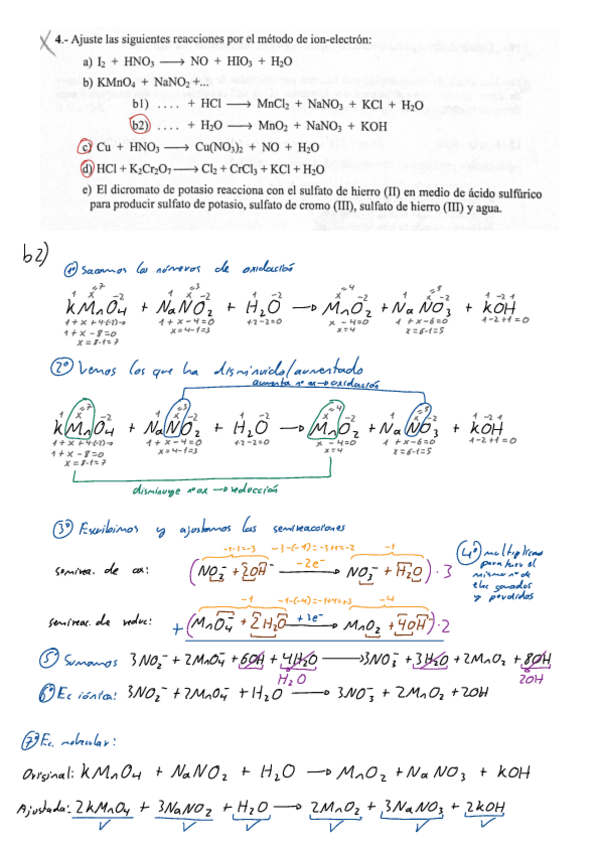 4.- Ajuste las siguientes reacciones por el método de ion-electrón:
a) I₂ + HNO₃ ⟶ NO + HIO₃ + H₂O
b) KMnO₄ + NaNO₂ +...
b1) .... + HCl ⟶ MnCl₂ + NaNO₃ + KCl + H₂O
b2) .... + H₂O ⟶ MnO₂ + NaNO₃ + KOH
c) Cu + HNO₃ ⟶ Cu(NO₃)₂ + NO + H₂O
d) HCl + K₂Cr₂O₇ ⟶ Cl₂ + CrCl₃ + KCl + H₂O
e) El dicromato de potasio reacciona con el sulfato de hierro (II) en medio de ácido sulfúrico
para producir sulfato de potasio, sulfato de cromo (III), sulfato de hierro (III) y agua.
b2)
1º Sacamos los números de oxidación
1 x=7 -2 1 x=3 -2 1 -2 x=4 -2 1 x=5 -2 1 -2 1
KMnO₄ + NaNO₂ + H₂O ⟶ MnO₂ + NaNO₃ + KOH
1+x-4=0 +2-2=0 x-4=0 1+x-6=0 1-2+1=0
1+x-8=0 x=4-1=3 x=4 x=6-1=5
x=8-1=7
2º Vemos los que ha disminuido/aumentado
aumenta nº ox → oxidación
1 x=7 -2 1 x=3 -2 1 -2 x=4 -2 1 x=5 -2 1 -2 1
KMnO₄ + NaNO₂ + H₂O ⟶ MnO₂ + NaNO₃ + KOH
1+x-4=0 +2-2=0 x-4=0 1+x-6=0 1-2+1=0
1+x-8=0 x=4-1=3 x=4 x=6-1=5
x=8-1=7
disminuye nº ox → reducción
3º Escribimos y ajustamos las semireacciones
-1-2=-3 -3-(-1)=-3+1=-2 -1
semirea. de ox: (NO₂⁻ + 2OH⁻ -2e⁻⟶ NO₃⁻ + H₂O) · 3
4º multiplicas para tener el mismo nº de elec ganados y perdidos
-1 -1-(-4)=-1+4=+3 -4
semireac. de reduc: + (MnO₄⁻ + 2H₂O +3e⁻⟶ MnO₂ + 4OH⁻) · 2
5º Sumamos 3NO₂⁻ + 2MnO₄⁻ + 6OH + 4H₂O ⟶ 3NO₃⁻ + 3H₂O + 2MnO₂ + 8OH
H₂O 2OH
6º Ec iónica: 3NO₂⁻ + 2MnO₄⁻ + H₂O ⟶ 3NO₃⁻ + 2MnO₂ + 2OH
7º Ec. molecular:
Original: KMnO₄ + NaNO₂ + H₂O ⟶ MnO₂ + NaNO₃ + KOH
Ajustada: 2KMnO₄ + 3NaNO₂ + H₂O ⟶ 2MnO₂ + 3NaNO₃ + 2KOH